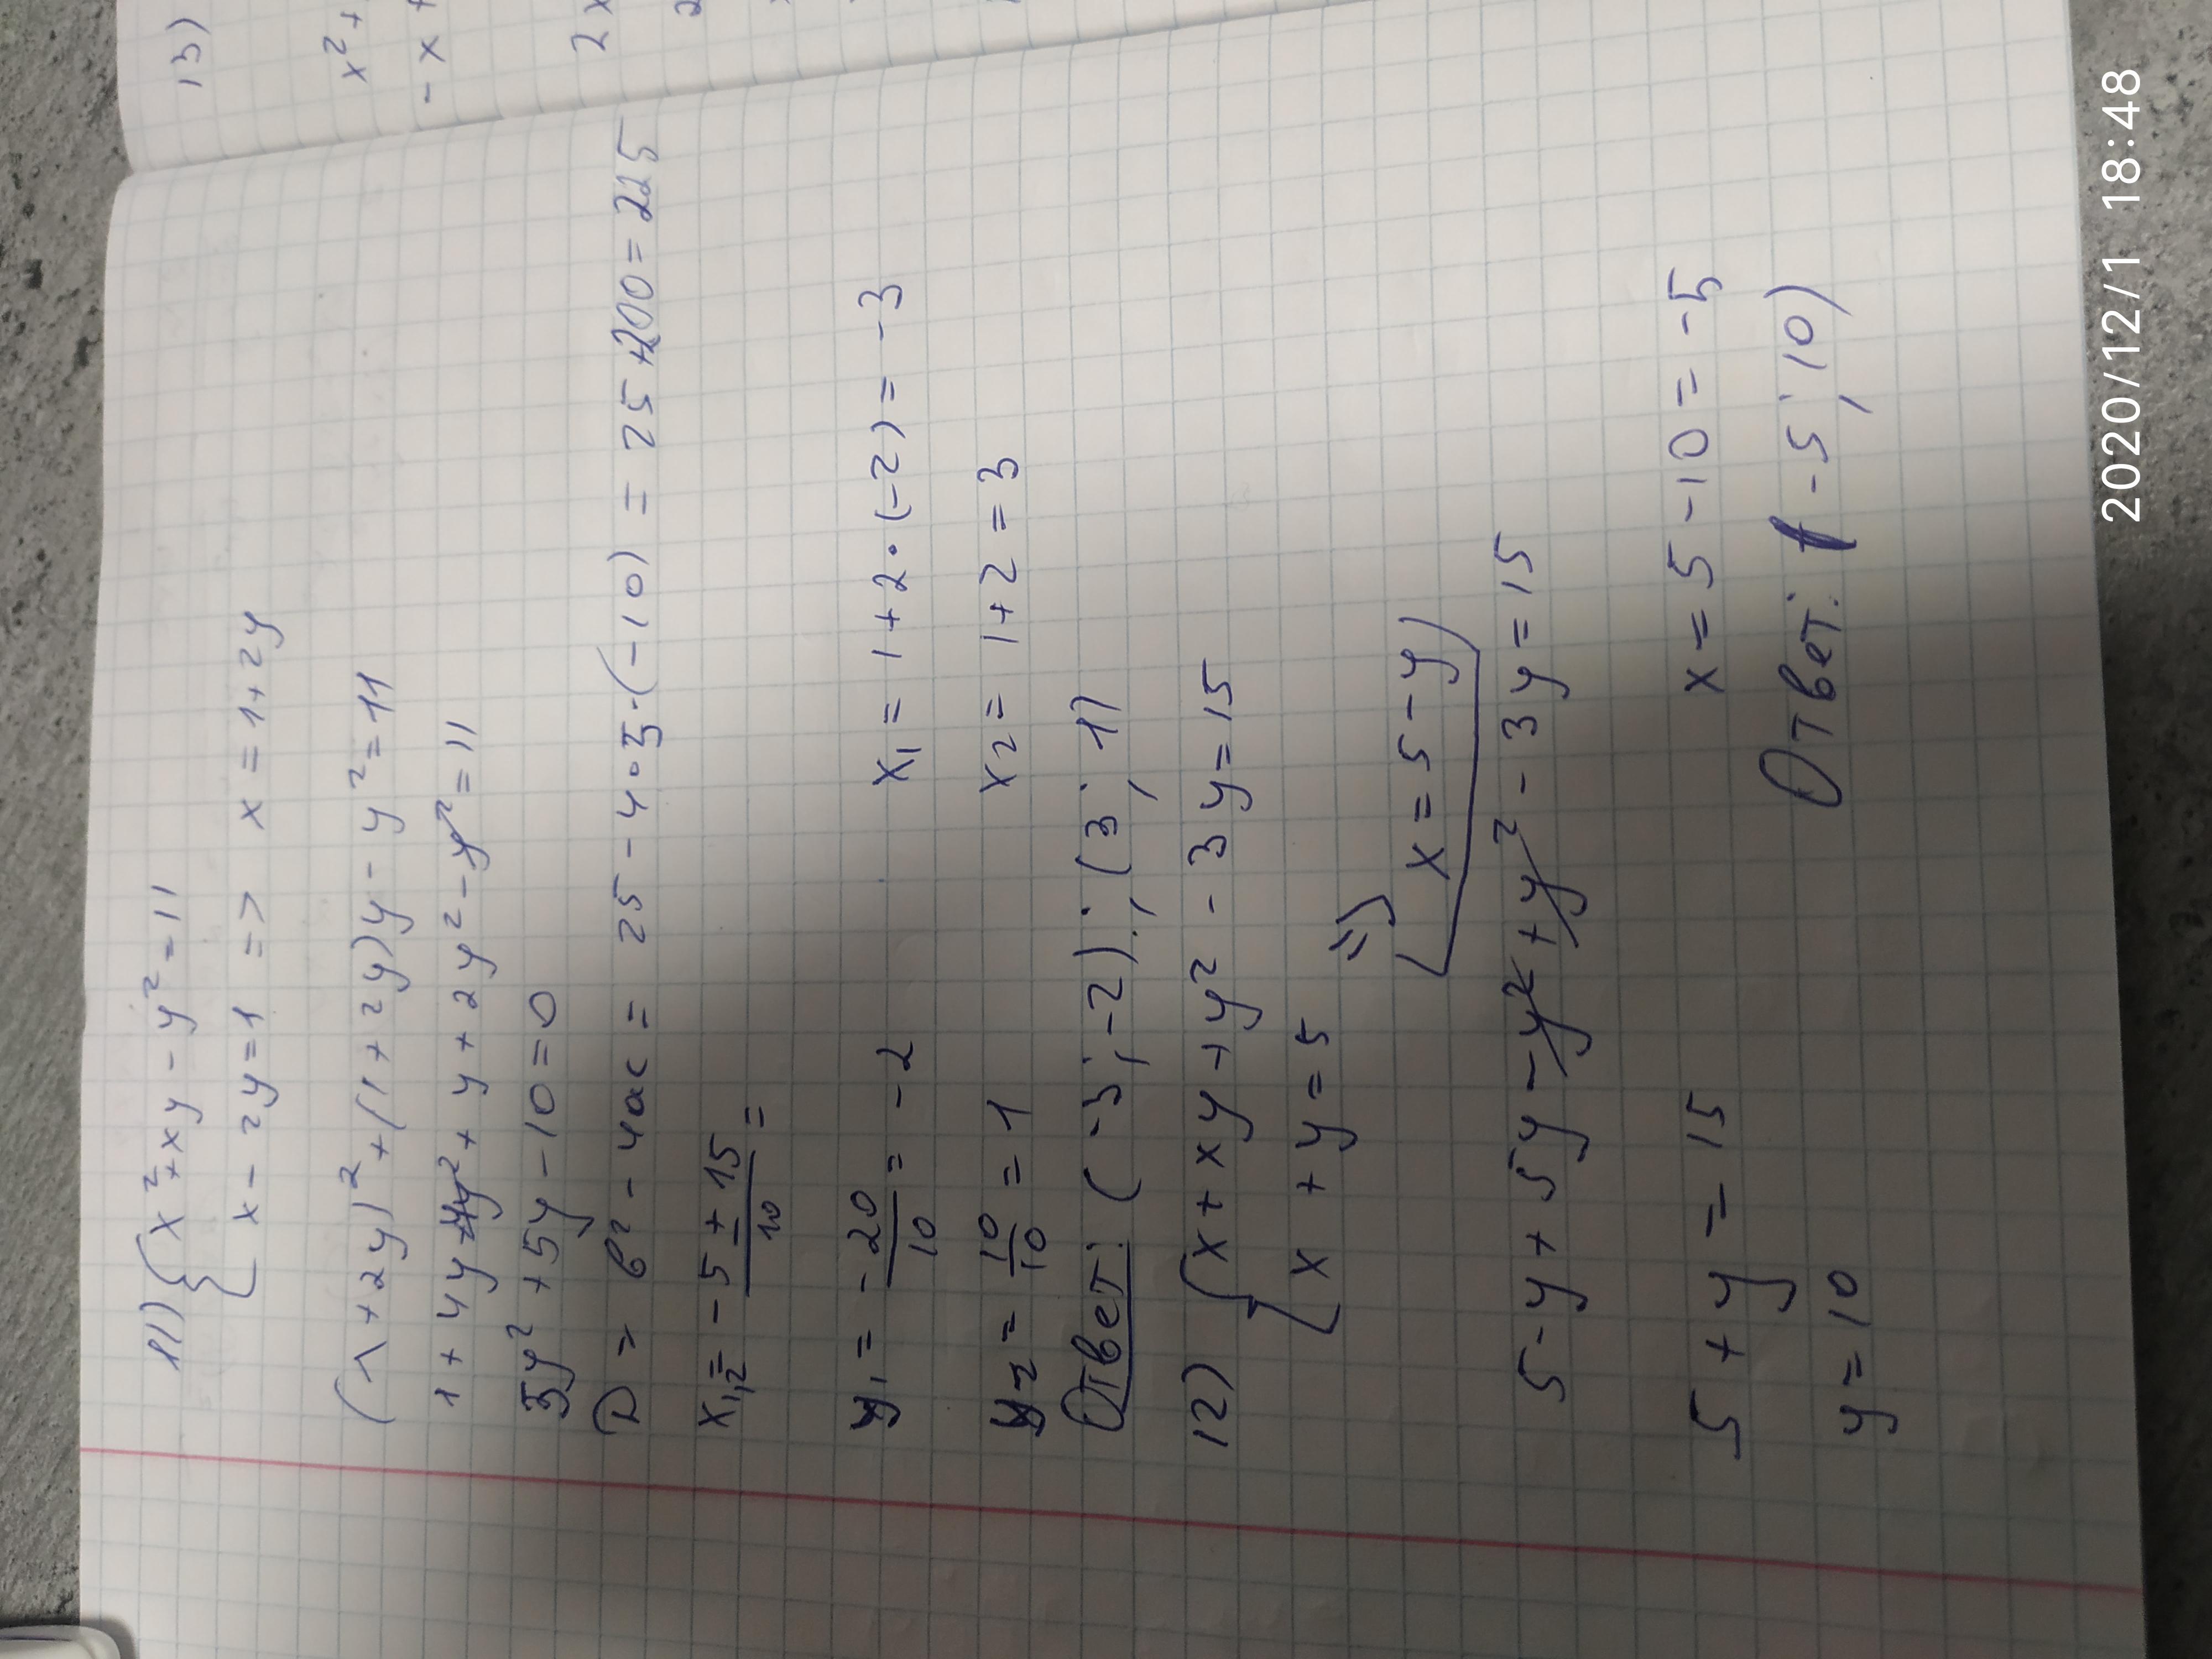 11) { x² + xy - y² = 11
x - 2y = 1 => x = 1 + 2y
(1 + 2y)² + (1 + 2y)y - y² = 11
1 + 4y + 4y² + y + 2y² - y² = 11
5y² + 5y - 10 = 0
D = b² - 4ac = 25 - 4·5·(-10) = 25 + 200 = 225
x₁,₂ = -5 ± 15 / 10 =
y₁ = -20/10 = -2 x₁ = 1 + 2·(-2) = -3
y₂ = 10/10 = 1 x₂ = 1 + 2 = 3
Ответ: (-3; -2); (3; 1)
12) { x + xy + y² - 3y = 15
x + y = 5
=> x = 5 - y
5 - y + 5y - y² + y² - 3y = 15
5 + y = 15 x = 5 - 10 = -5
y = 10 Ответ: (-5; 10)
13)
x² +
- x +
2x
2020/12/1 18:48